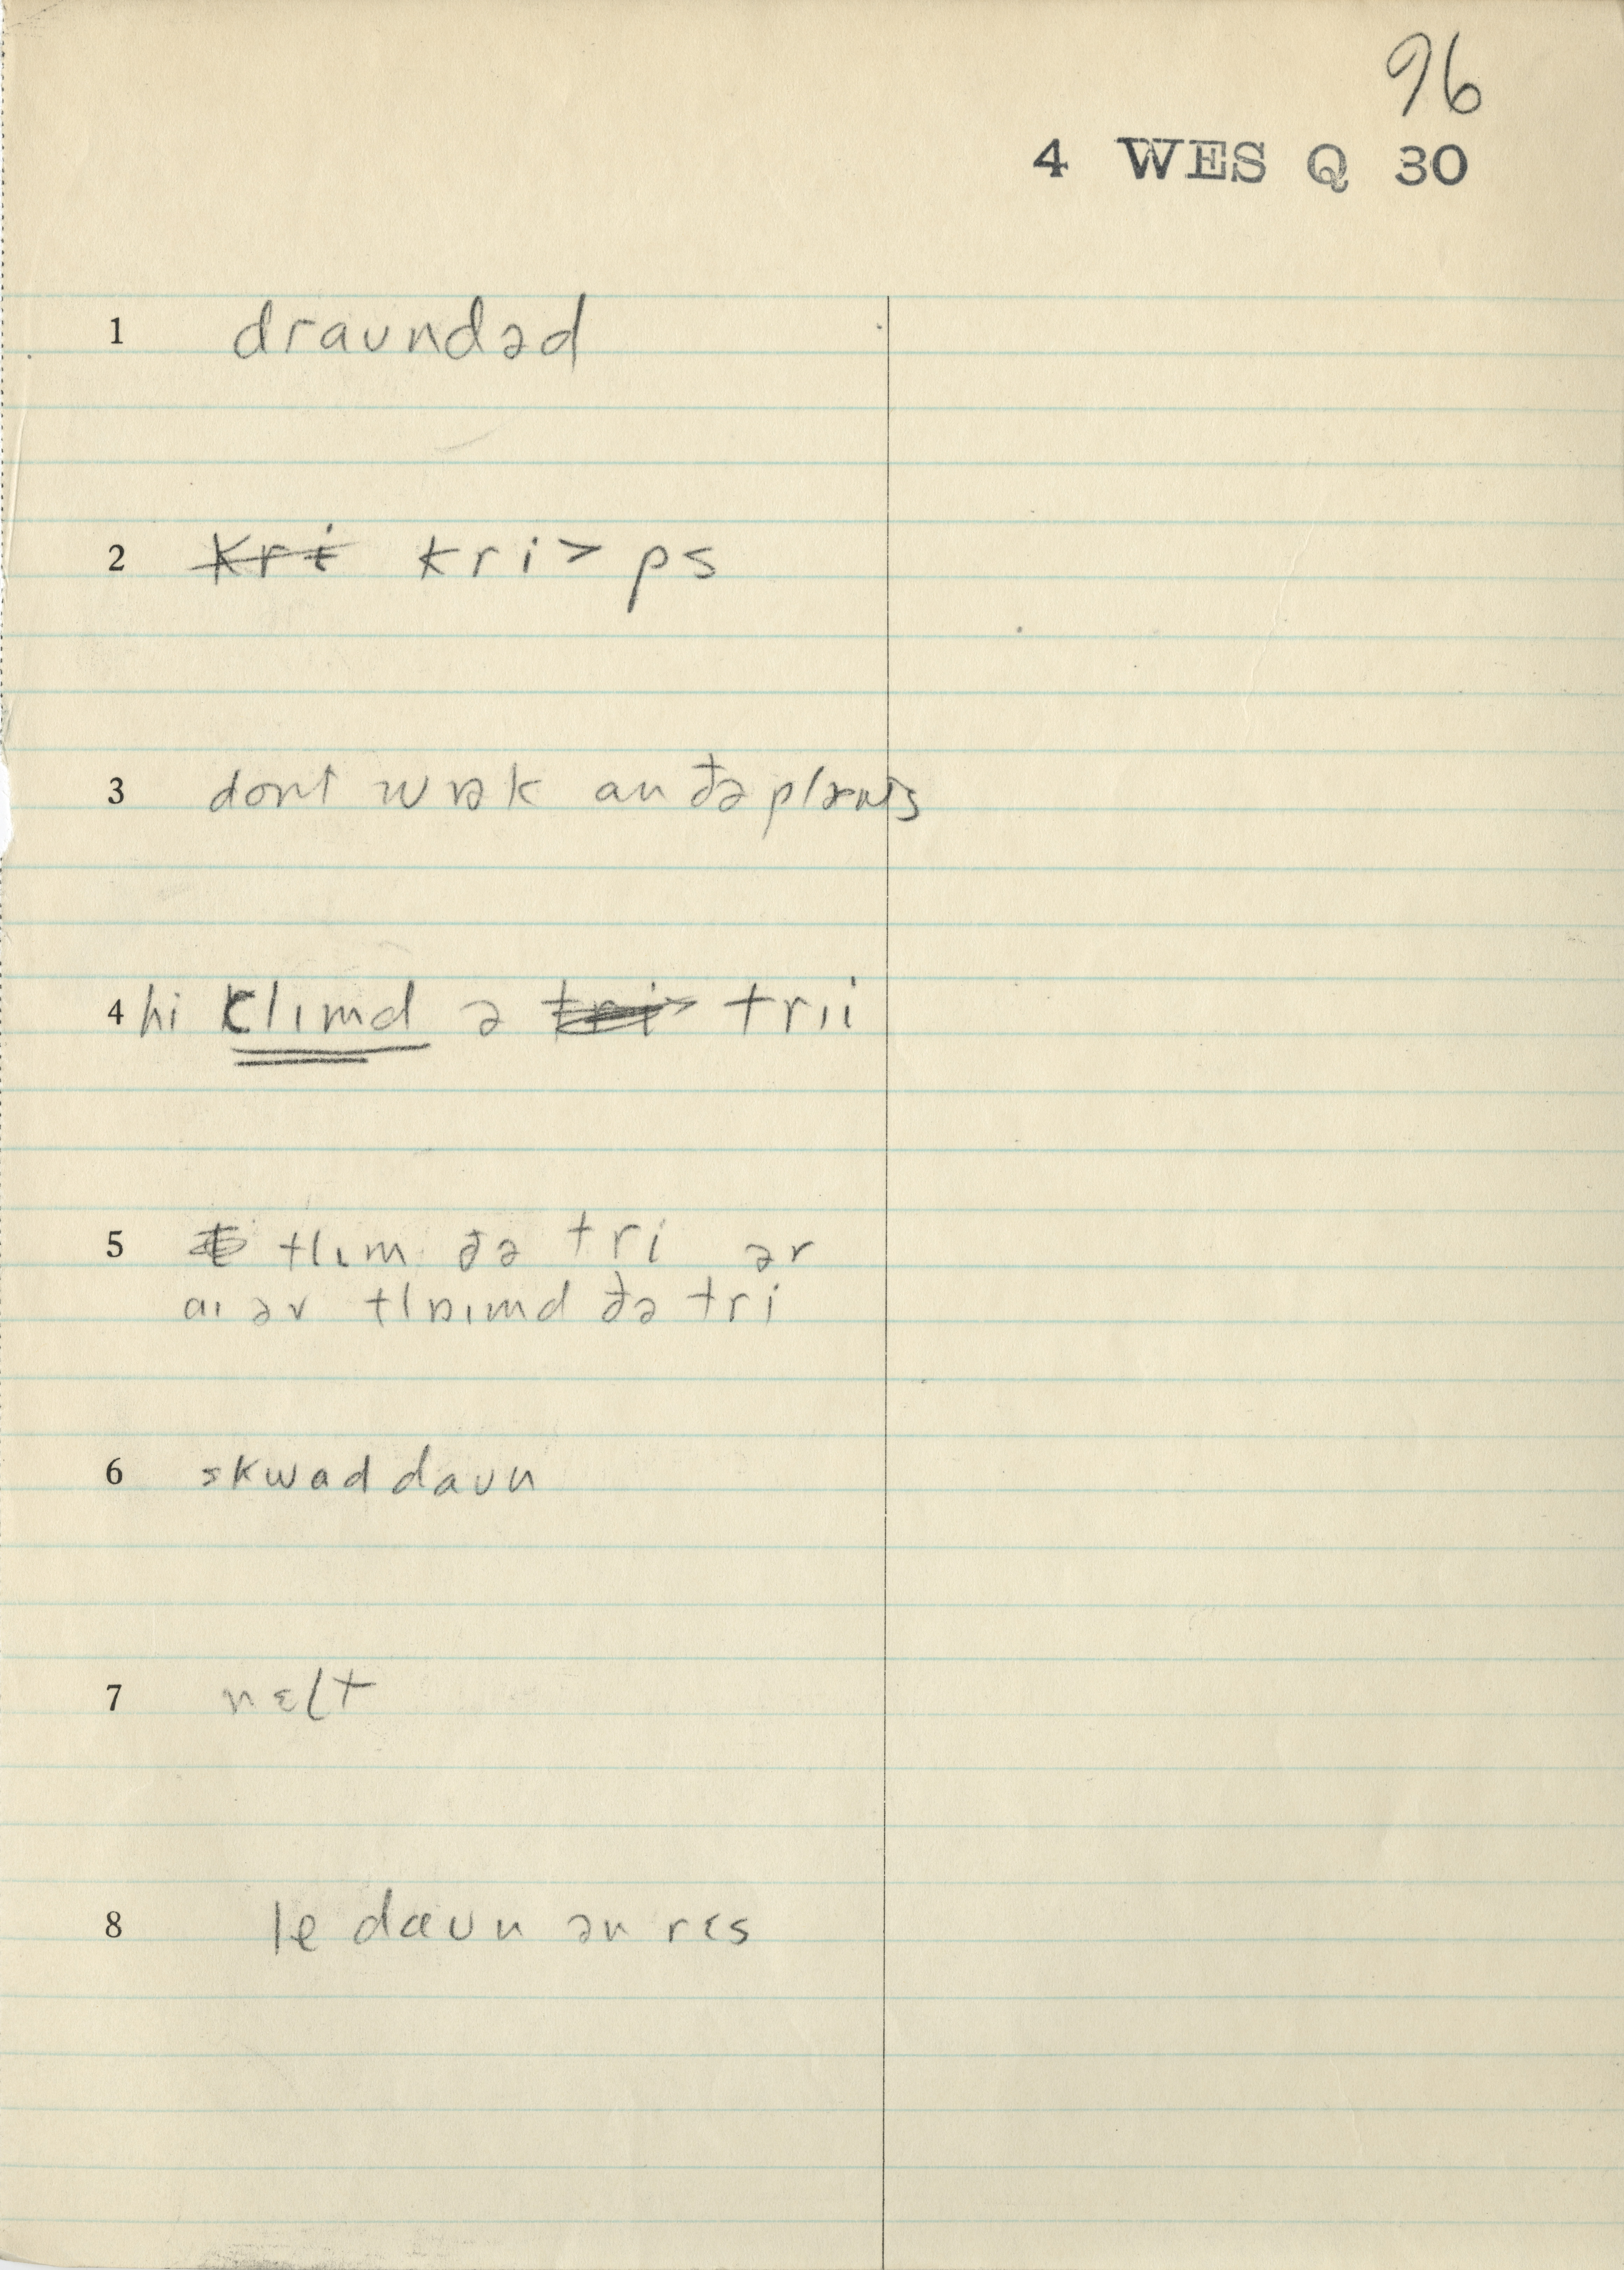 96
4 WES Q 30
1 draʊndəd
2 kri kri> ps
3 dont wɒək an đə plænts
4 hi klɪmd ə tri> trɪi
5 tlɪm đə tri ər
aɪ əv tlɒɪmd đə tri
6 skwad daʊn
7 nɛlt
8 le dæʊn ən rɛs